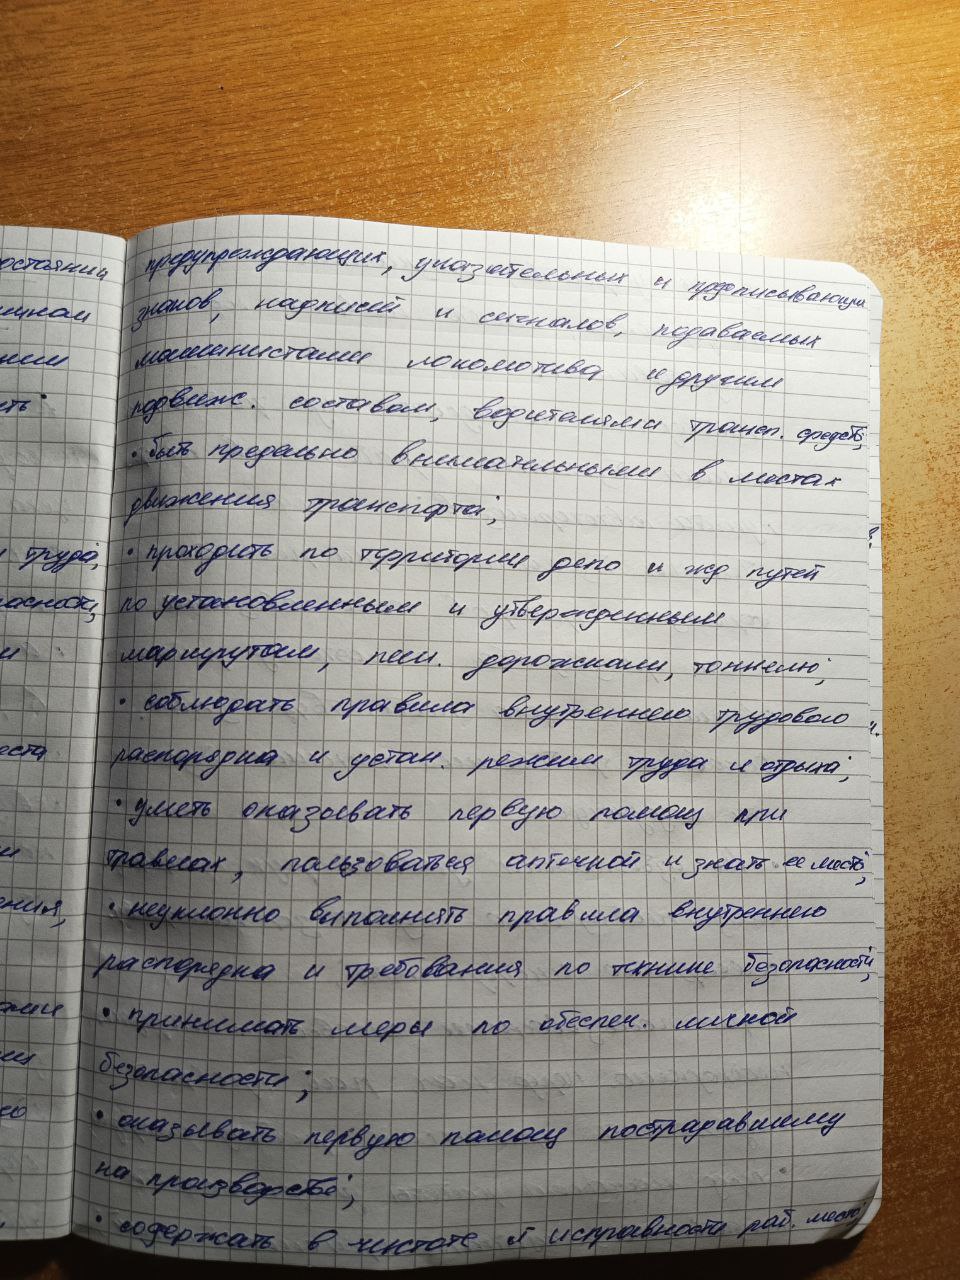 предупреждающих, указательных и предписывающих
знаков, надписей и сигналов, подаваемых
машинистами локомотива и другим
подвиж. составом, водителями трансп. средств;
• быть предельно внимательными в местах
движения транспорта;
• проходить по территории депо и жд путей
по установленным и утвержденным
маршрутам, пеш. дорожками, тоннелю;
• соблюдать правила внутреннего трудового
распорядка и устан. режим труда и отдыха;
• уметь оказывать первую помощ при
травмах, пользоваться аптечкой и знать ее место;
• неуклонно выполнять правила внутреннего
распорядка и требования по технике безопасности;
• принимать меры по обеспеч. личной
безопасности;
• оказывать первую помощ пострадавшему
на производстве;
• содержать в чистоте и исправности раб. место;
труда;